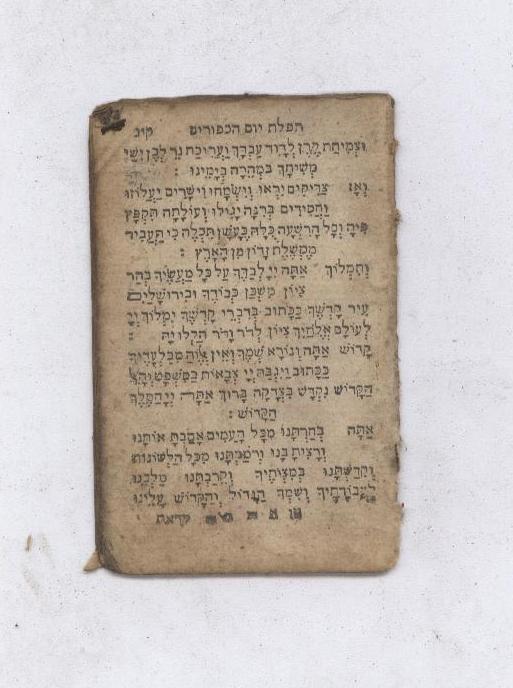 תפלת יום הכפורים קיג
וּצְמִיחַת קֶרֶן לְדָוִד עַבְדֶּךָ וַעֲרִיכַת נֵר לְבֶן יִשַׁי
מְשִׁיחֶךָ בִּמְהֵרָה בְיָמֵינוּ :
וְאָז צַדִּיקִים יִרְאוּ וְיִשְׂמָחוּ וִישָׁרִים יַעֲלוֹזוּ
וַחֲסִידִים בְּרִנָּה יָגִילוּ וְעוֹלָתָה תִּקְפָּץ
פִּיהָ וְכָל הָרִשְׁעָה כֻּלָּהּ בְּעָשָׁן תִּכְלֶה כִּי תַעֲבִיר
מֶמְשֶׁלֶת זָדוֹן מִן הָאָרֶץ :
וְתִמְלוֹךְ אַתָּה יְיָ לְבַדֶּךָ עַל כָּל מַעֲשֶׂיךָ בְּהַר
צִיּוֹן מִשְׁכַּן כְּבוֹדֶךָ וּבִירוּשָׁלַיִם
עִיר קָדְשֶׁךָ כַּכָּתוּב בְּדִבְרֵי קָדְשֶׁךָ יִמְלוֹךְ יְיָ
לְעוֹלָם אֱלֹהַיִךְ צִיּוֹן לְדֹר וָדֹר הַלְלוּיָהּ :
קָדוֹשׁ אַתָּה וְנוֹרָא שְׁמֶךָ וְאֵין אֱלוֹהַּ מִבַּלְעָדֶיךָ
כַּכָּתוּב וַיִּגְבַּהּ יְיָ צְבָאוֹת בַּמִּשְׁפָּט וְהָאֵל
הַקָּדוֹשׁ נִקְדַּשׁ בִּצְדָקָה בָּרוּךְ אַתָּה יְיָ הַמֶּלֶךְ
הַקָּדוֹשׁ :
אַתָּה בְחַרְתָּנוּ מִכָּל הָעַמִּים אָהַבְתָּ אוֹתָנוּ
וְרָצִיתָ בָּנוּ וְרוֹמַמְתָּנוּ מִכָּל הַלְּשׁוֹנוֹת
וְקִדַּשְׁתָּנוּ בְּמִצְוֹתֶיךָ וְקֵרַבְתָּנוּ מַלְכֵּנוּ
לַעֲבוֹדָתֶךָ וְשִׁמְךָ הַגָּדוֹל וְהַקָּדוֹשׁ עָלֵינוּ
קראת